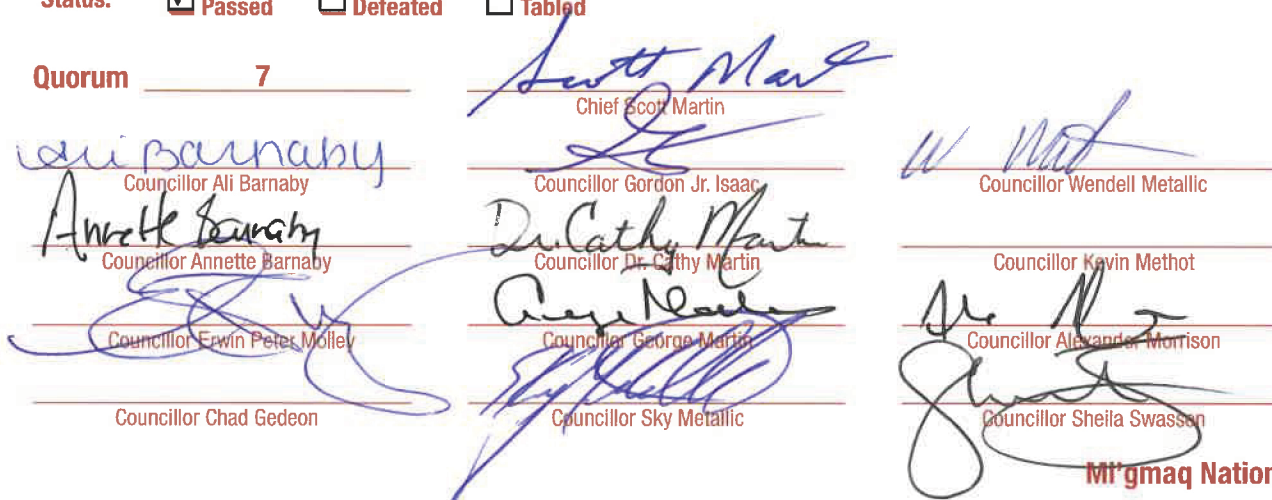 Status: ☑ Passed ☐ Defeated ☐ Tabled
Quorum 7
Scott Mart
Chief Scott Martin
Ali Barnaby
Councillor Ali Barnaby
Councillor Gordon Jr. Isaac
W
Councillor Wendell Metallic
Annette Barnaby
Councillor Annette Barnaby
Dr. Cathy Martin
Councillor Dr. Cathy Martin
Councillor Kevin Methot
Councillor Erwin Peter Molley
George Martin
Councillor George Martin
Councillor Alexander Morrison
Councillor Chad Gedeon
Sky Metallic
Councillor Sky Metallic
Councillor Sheila Swasson
MI'gmaq Nation